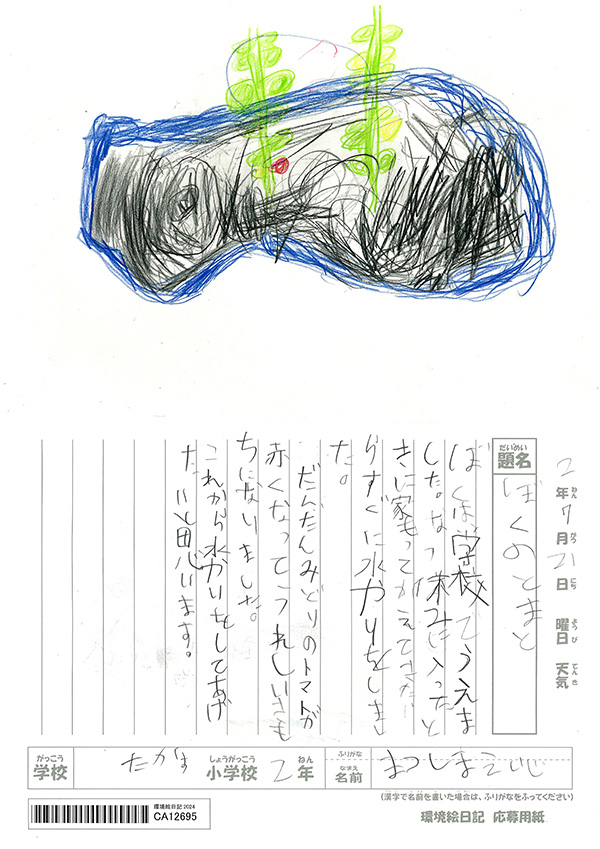 2年7月21日 曜日 天気
ねん がつ にち ようび てんき
だいめい
題名 ぼくのとまと
ぼくは学校でうえま
した。なつ休みに入ったと
きに家もってかえてきた
らすぐに水やりをしまし
た。
だんだんみどりのトマトが
赤くなってうれしいきも
ちになりました。
これから水かいをしてあげ
たいと思います。
がっこう しょうがっこう ねん ふりがな
学校 たかま 小学校 2年
なまえ
名前 まつしまえいじ
(漢字で名前を書いた場合は、ふりがなをふってください)
環境絵日記 2024
CA12695
環境絵日記 応募用紙